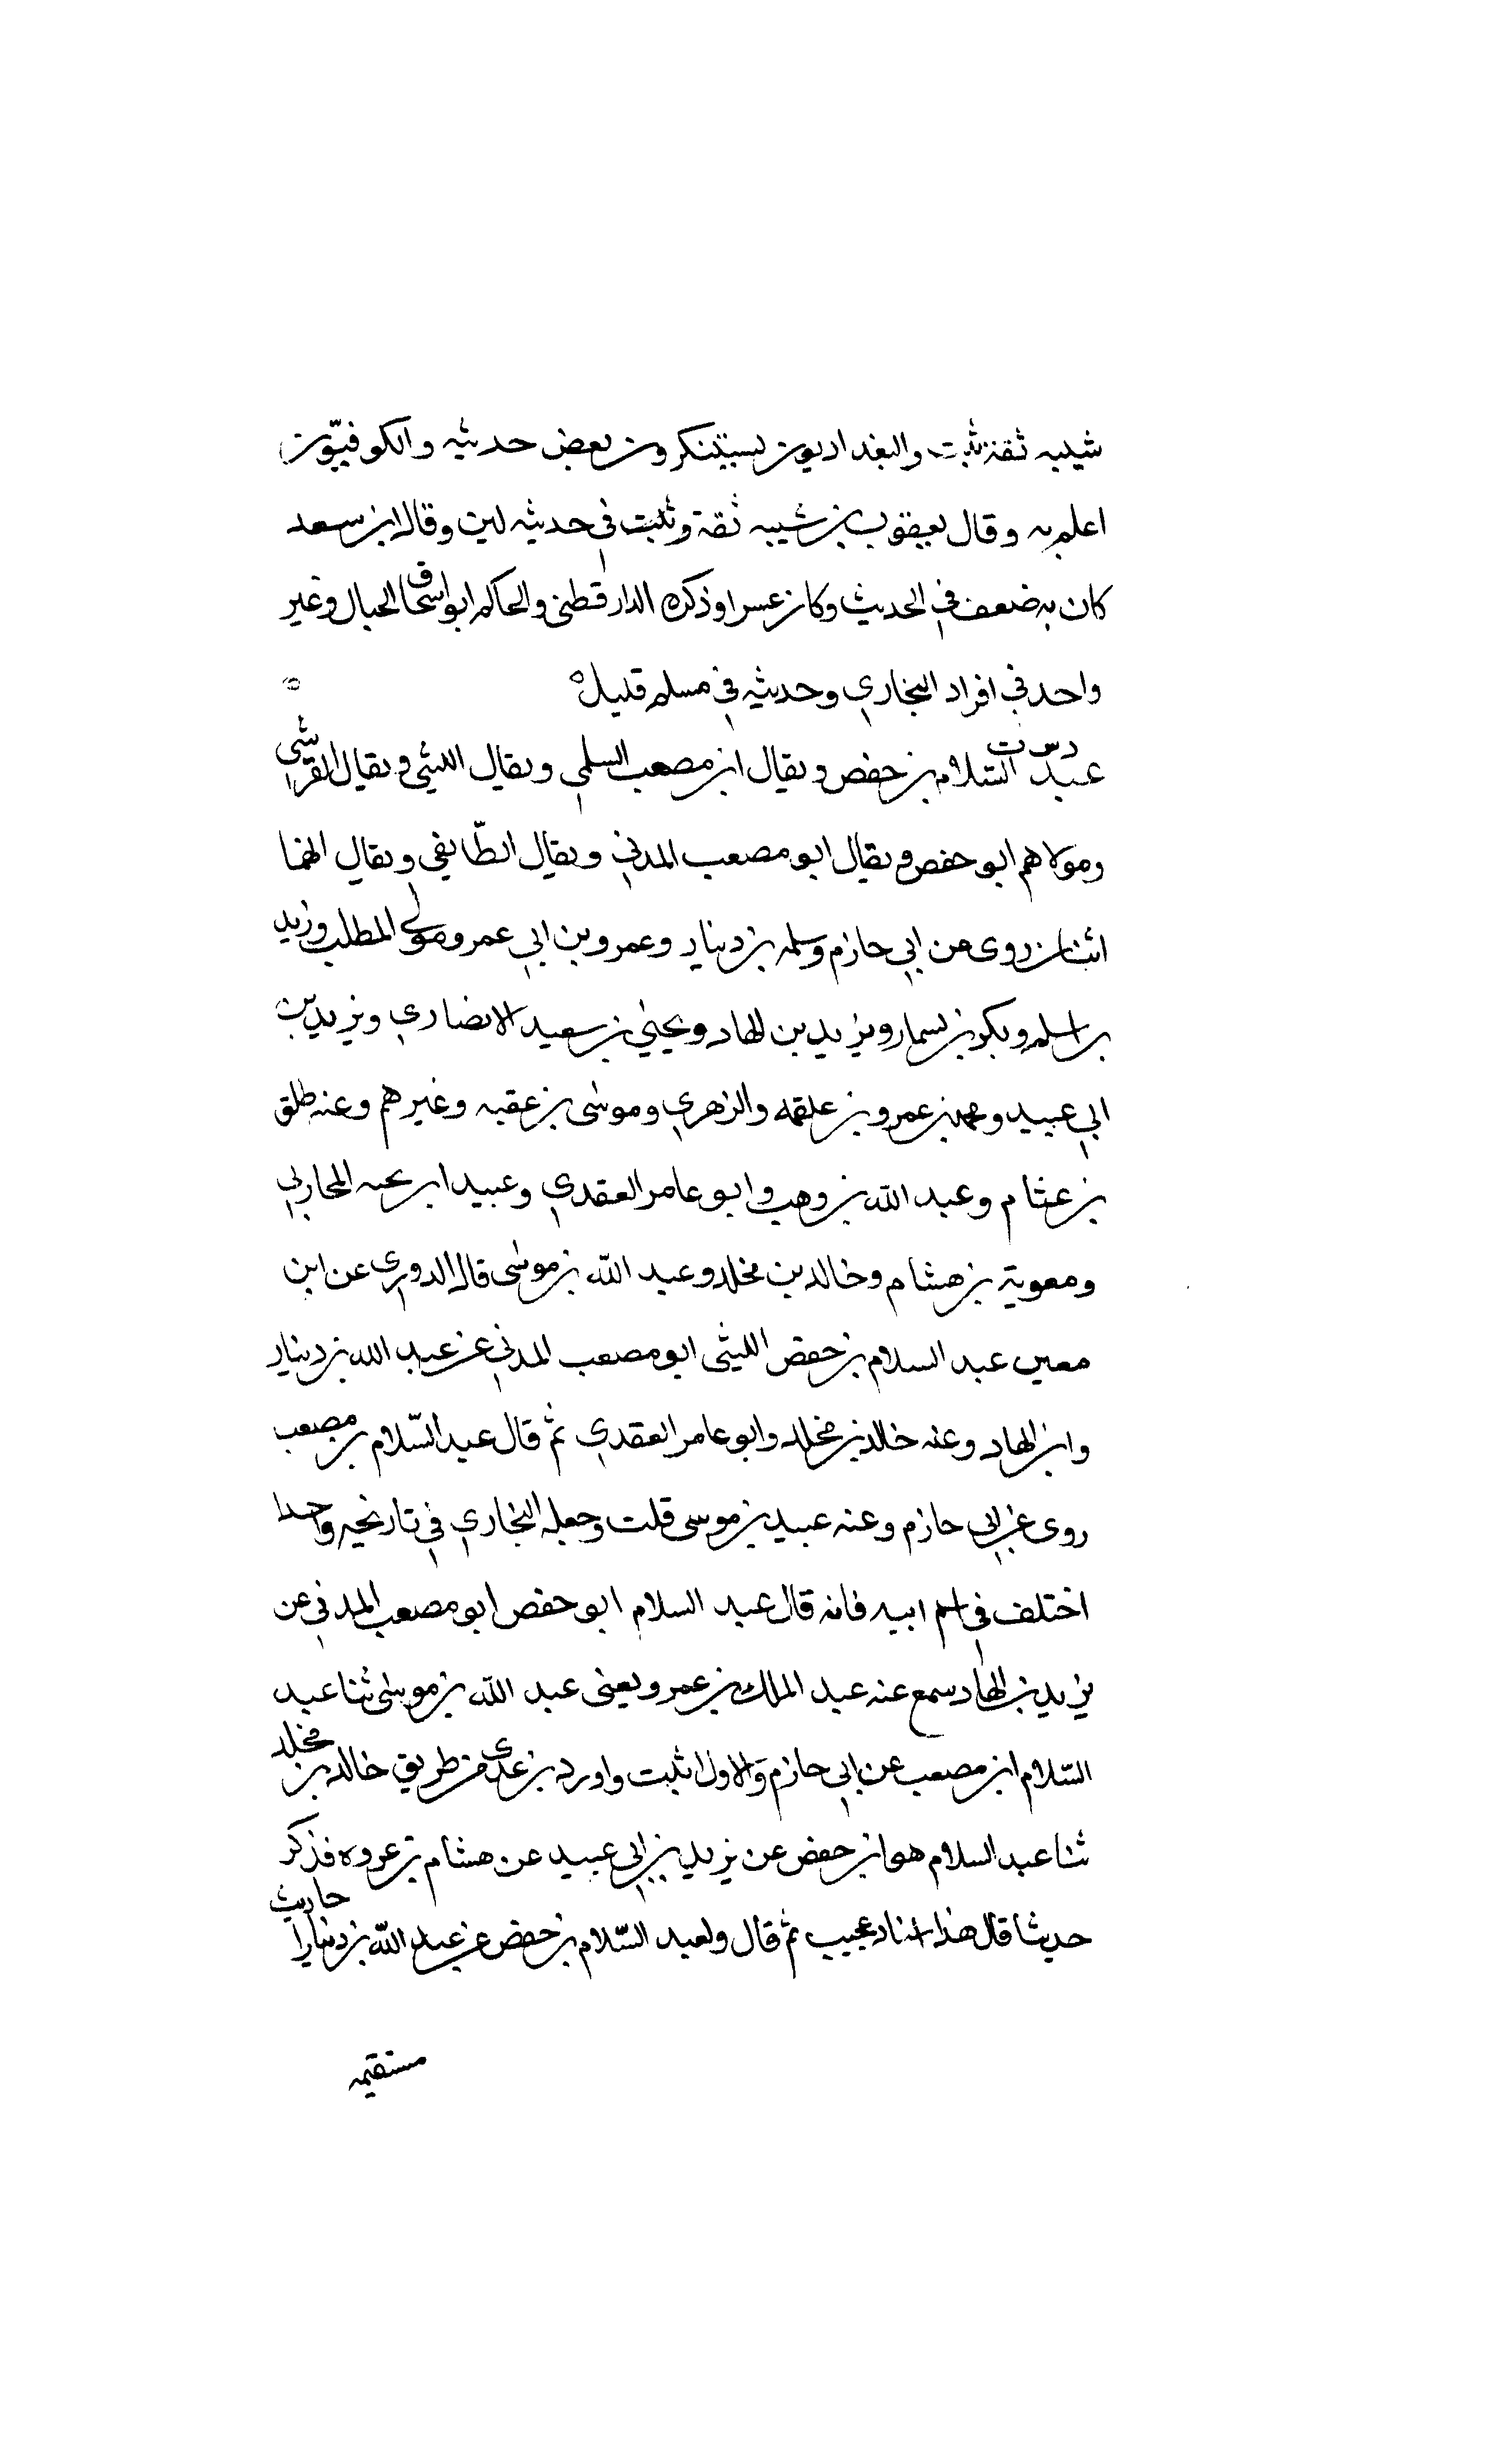 شيبه ثقة ثبت والبغداديون يستنكرون بعض حديثه والكوفيّون
اعلم به وقال يعقوب بن شيبه ثقة وثبت في حديثه لين وقال ابن سعد
كان به ضعف في الحديث وكان عسرا وذكره الدارقطني والحاكم ابو اسحاق الحبال وغير
واحد في افراد البخاري وحديثه في مسلم قليل ه
د س ت
عبد السّلام بن حفص ويقال ابن مصعب السلمي ويقال الليثي ويقال القرشي
ومولاهم ابو حفص ويقال ابو مصعب المدني ويقال الطّايفي ويقال انهما
اثنان روى عن ابي حازم وسلمه بن دينار وعمرو بن ابي عمرو مولى المطلب وزيد
بن اسلم وبكر بن يسمار ويزيد بن الهاد ويحيى بن سعيد الانصاري ويزيد بن
ابي عبيد ومحمد بن عمرو بن علقمه والزهري وموسى بن عقبه وغيرهم وعنه طلق
بن غنام وعبد الله بن وهب وابو عامر العقدي وعبيد ابن المحاربي
ومعوية بن هشام وخالد بن مخلد وعبد اللّه بن موسى قال الدوري عن ابن
معين عبد السلام بن حفص الليثي ابو مصعب المدني عن عبد الله بن دينار
وابن الهاد وعنه خالد بن مخلد وابو عامر العقدي ثم قال عبد السّلام بن مصعب
روى عن ابي حازم وعنه عبيد بن موسى قلت وجعله البخاري في تاريخه واحدا
اختلف في اسم ابيه فانه قال عبد السلام ابو حفص ابو مصعب المدني عن
يزيد بن الهاد سمع عنه عبد الملك بن عمرو يعنى عبد اللّه بن موسى ثنا عبد
السّلام ابن مصعب عن ابي حازم والاول اثبت واورد بن عدى من طريق خالد بن مخلد
ثنا عبد السلام هو ابن حفص عن يزيد بن ابي عبيد عن هشام بن عروه فذكر
حديثا قال هذا اسناد عجيب ثم قال ولعبد السّلام بن حفص عن عبد اللّه بن دينار احاديث
مستقيمه